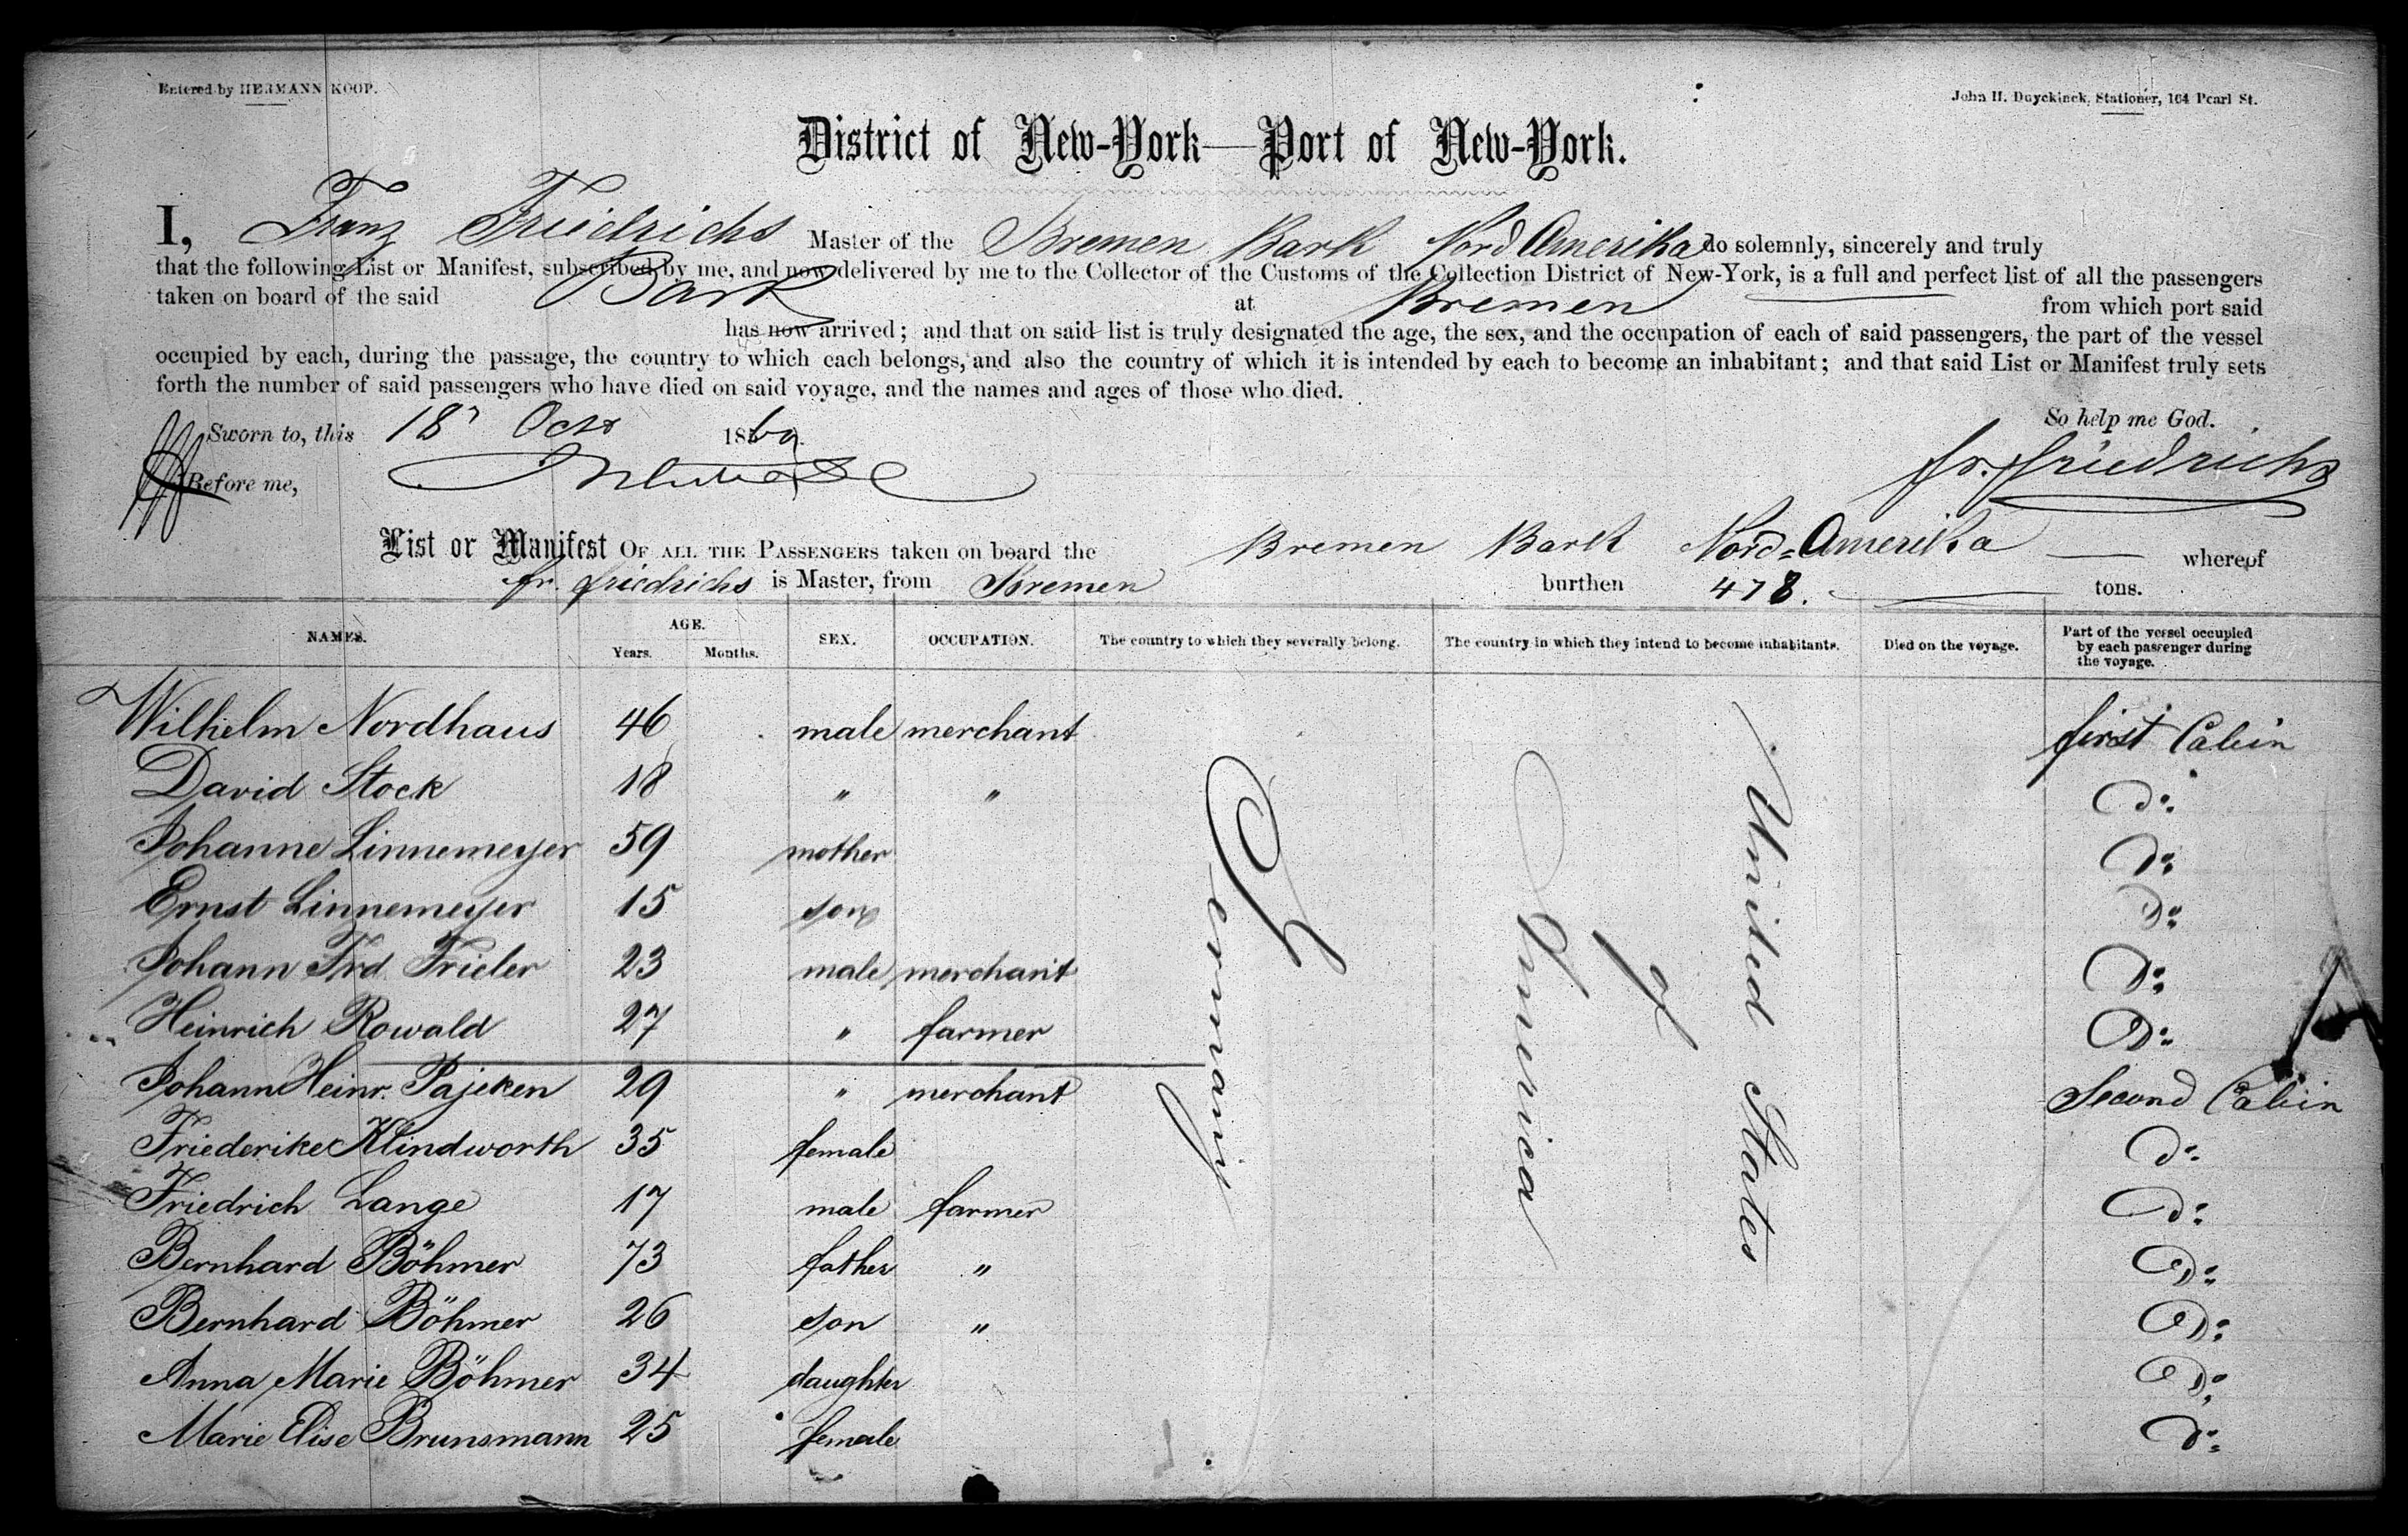 Entered by HERMANN KOOP.
John H. Duyckinck, Stationer, 164 Pearl St.
District of New-York—Port of New-York.
I, Franz Friedrichs Master of the Bremen Bark Nord Amerika do solemnly, sincerely and truly
that the following List or Manifest, subscribed by me, and now delivered by me to the Collector of the Customs of the Collection District of New-York, is a full and perfect list of all the passengers
taken on board of the said Bark at Bremen from which port said
has now arrived; and that on said list is truly designated the age, the sex, and the occupation of each of said passengers, the part of the vessel
occupied by each, during the passage, the country to which each belongs, and also the country of which it is intended by each to become an inhabitant; and that said List or Manifest truly sets
forth the number of said passengers who have died on said voyage, and the names and ages of those who died.
So help me God.
Sworn to, this 18 Octr 1869.
Fr. Friedrichs
Before me,
List or Manifest OF ALL THE PASSENGERS taken on board the Bremen Bark Nord-Amerika whereof
Fr. Friedrichs is Master, from Bremen burthen 478. tons.
NAMES. AGE. Years. Months. SEX. OCCUPATION. The country to which they severally belong. The country in which they intend to become inhabitants. Died on the voyage. Part of the vessel occupied by each passenger during the voyage.
Wilhelm Nordhaus 46 male merchant first Cabin
David Stock 18 " " Do
Johanne Linnemeyer 59 mother Do
Ernst Linnemeyer 15 son Do
Johann Frd. Frieler 23 male merchant Do
Heinrich Rowald 27 " farmer Do
Johann Heinr. Pajeken 29 " merchant Second Cabin
Friederike Klindworth 35 female Do
Friedrich Lange 17 male farmer Do
Bernhard Böhmer 73 father " Do
Bernhard Böhmer 26 son " Do
Anna Marie Böhmer 34 daughter Do
Marie Elise Brunsmann 25 female Do
Germany
United States
of
America